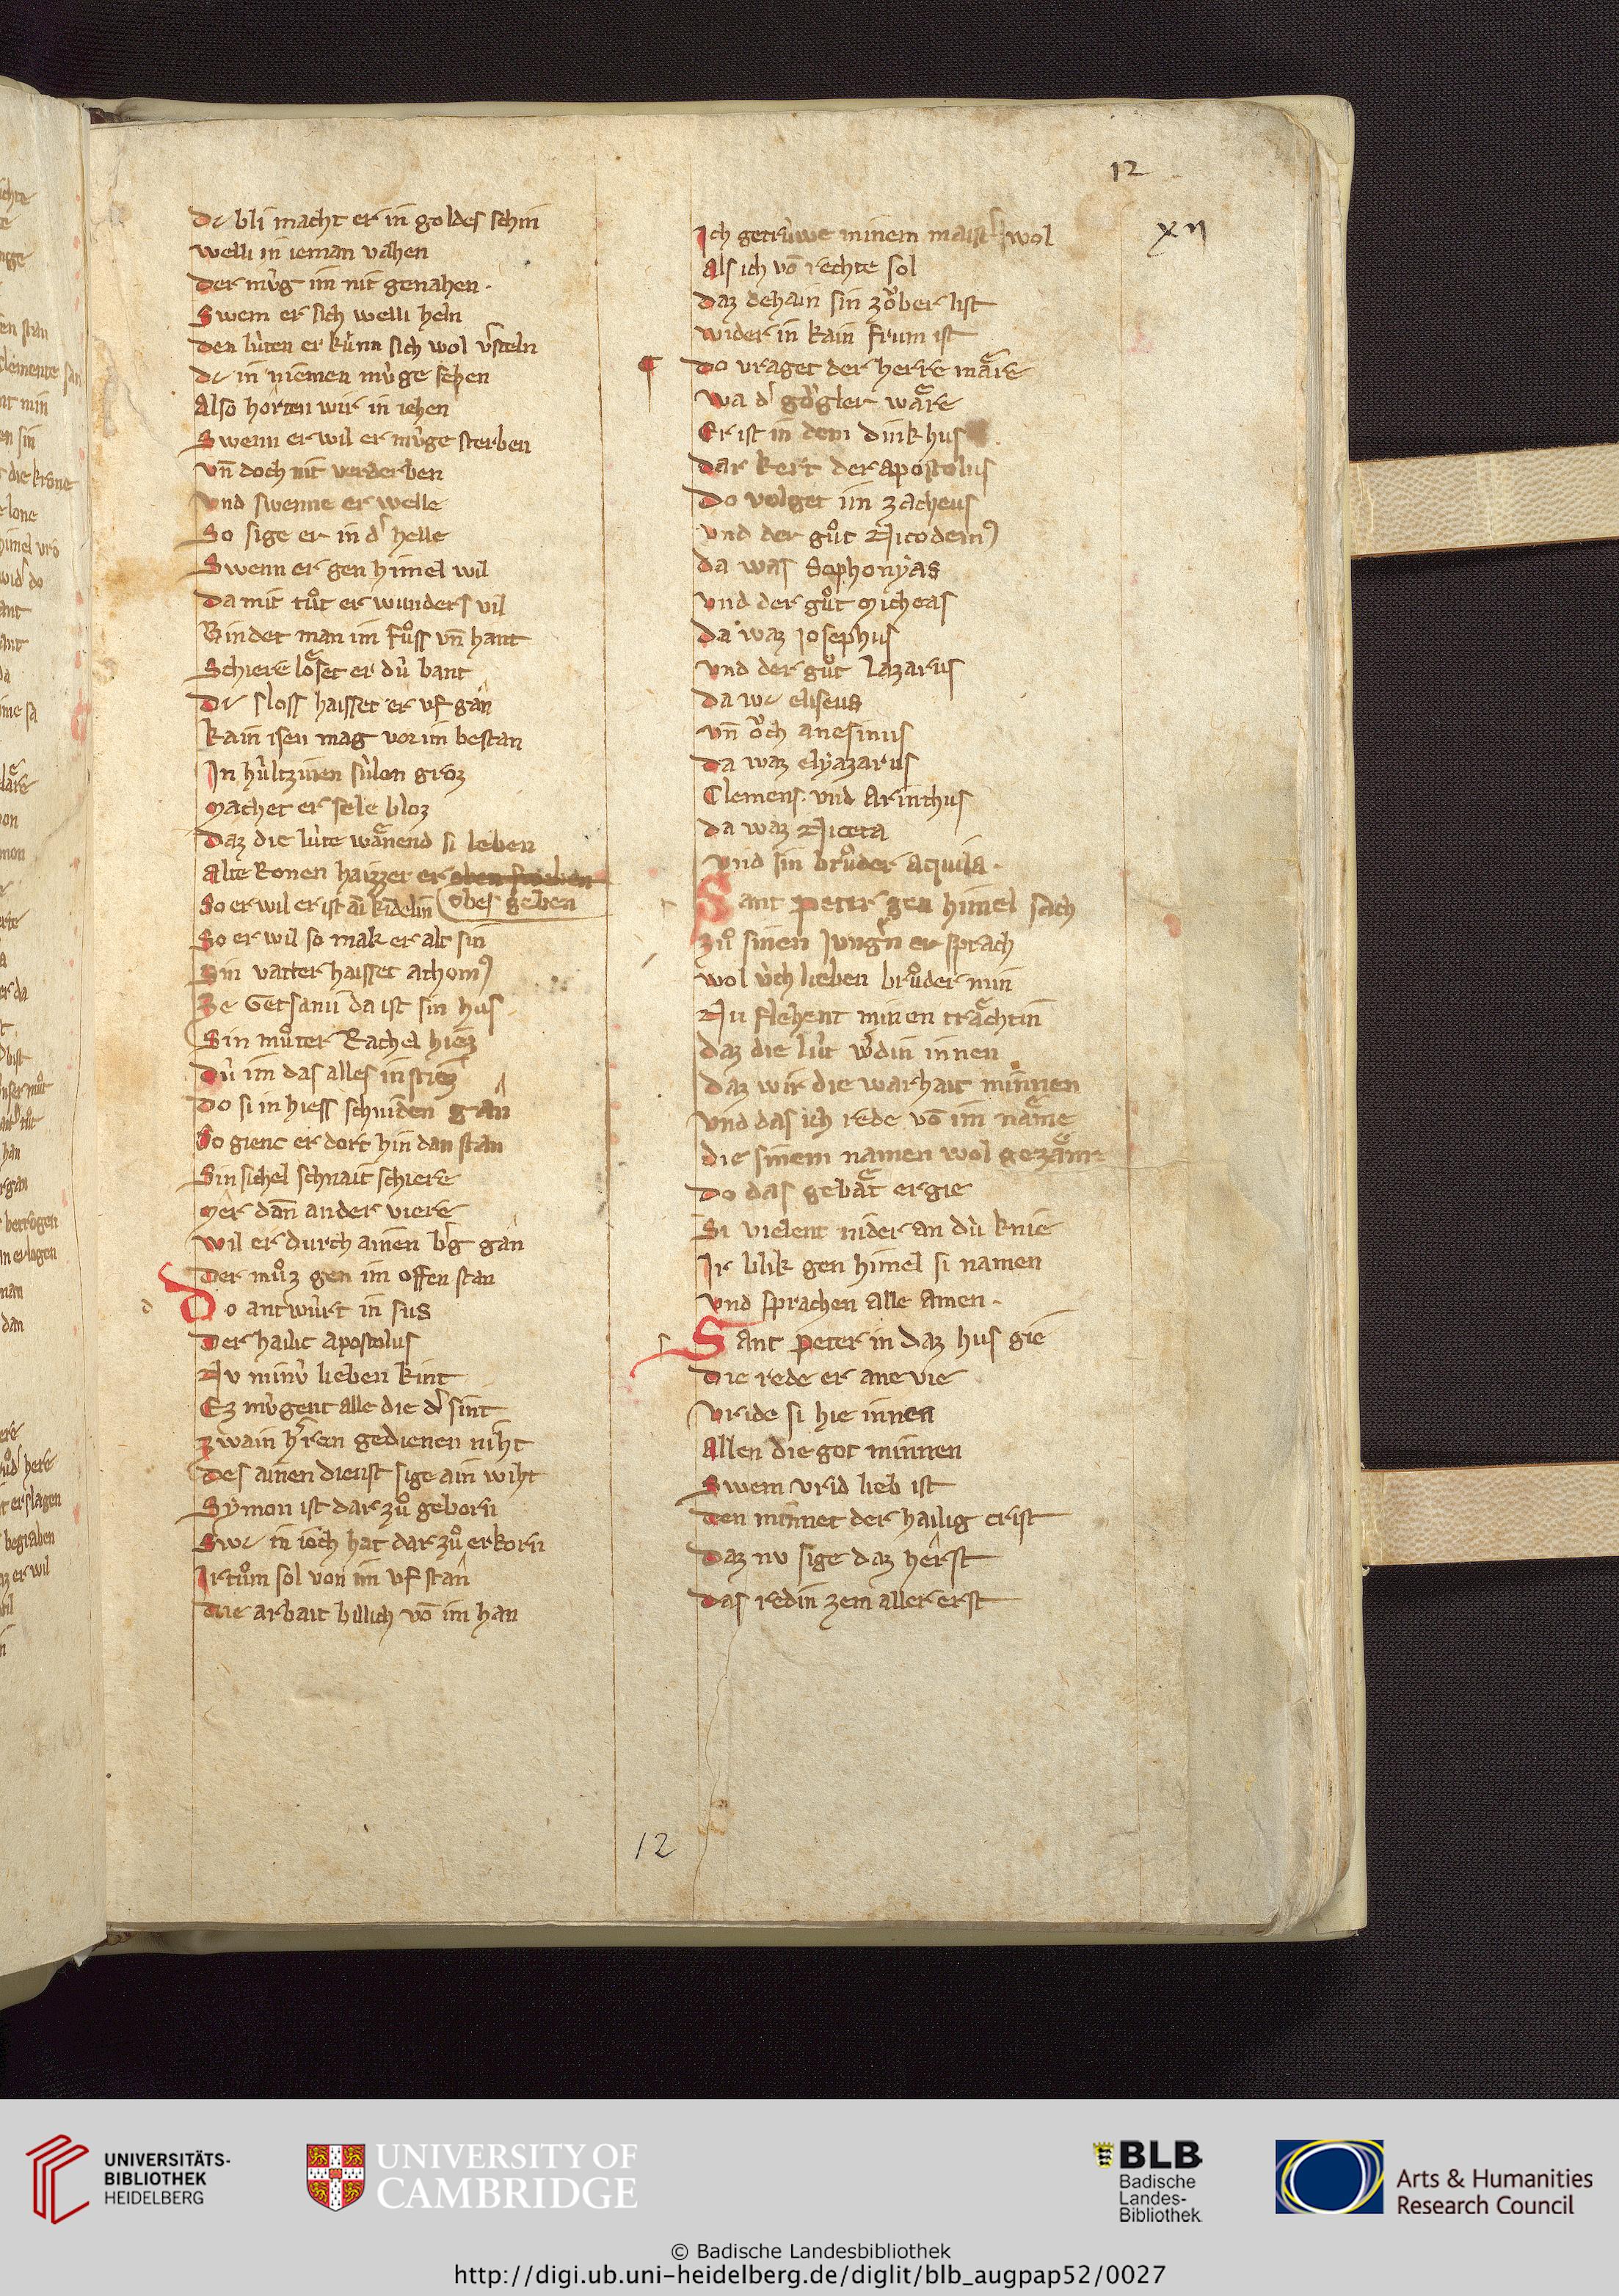 12
xii
dc bli macht er in goldes schin
welli in ieman vahen
der mùg im nit genahen.
Swem er sich welli heln
den lùten er kùnn sich wol vˢteln
dc in niemen mùge sehen
Also horten wir in iehen
Swenn er wil er mùge sterben
vn̄ doch nit verderben
vnd swenne er welle
So sige er in dˢ helle
Swenn er gen himel wil
da mit tuͦt er wunders vil
Bindet man im fuͦss vn̄ hant
Schiere loͤset er dù bant
dc sloss haisset er vf gan
kain isen mag vor im bestan
In hùltzinen sùlen groz
machet er sele bloz
daz die lùte waͤnend si leben
alte Ronen haizzet er oben sweben
So er wil er ist ain kindelin obes geben
So er wil so mak er alt sin
Sin vatter haisset athomꝰ
Ze Getsanii da ist sin hus
Sin muͦter Rachel hiez
dù im das alles in stiez
do si in hiess schniden gân
do gienc er dort hin dan stan
Sin sichel schnait schiere
mer dan̄ ander viere
wil er durch ainen bˢg gan
der muͦz gen im offen stan
Do antwùrt in sus
der hailic apostolus
Nv minù lieben kint
Ez mùgent alle die dˢ sint
zwain hˢren gedienen niht
des ainen dienst sige ain wiht
Sẏmon ist dar zuͦ geborn
Swc in ioch hat dar zuͦ erkorn
Irtuͦm sol von im vf stân
die arbait billich vō im han
Ich getrùwe minem maistˢ wol
Als ich vō rechte sol
daz dehain sin zoͮber list
wider in kain frum ist
¶ do vraget der herre maͤre
wa dˢ goͤgler waͤre
Er ist in dem dinkhus
dar kert der apostolus
do volget im zacheus
vnd der guͦt Nicodemꝰ
da was Sophonẏas
vnd der guͦt micheas
da waz Iosephus
vnd der guͦt lazarus
da wc eliseus
vn̄ oͮch anesimus
da waz elẏazarus
Clemens. vnd Arinthus
da waz Niceta
vnd sin bruͦder aquila.
Sant peter gen himel sach
zuͦ sinen Iungˢn er sprach
wol ùch lieben bruͦder min
Nu flehent minen traͤchtin
daz die lùt wˢdin innen
daz wir die warhait minnen
vnd das ich rede vō im naͤme
die sinem namen wol gezaͤme
do das gebaͤt ergie
Si vielent nider an dù knie
Ir blik gen himel si namen
vnd sprachen alle amen.
Sant peter in daz hus gie
die rede er ane vie
vride si hie innen
allen die got minnen
Swem vrid lieb ist
den minnet der hailig crist
daz nv sige daz hêrst
das redin zem aller erst
12
UNIVERSITÄTS-
BIBLIOTHEK
HEIDELBERG
UNIVERSITY OF
CAMBRIDGE
BLB
Badische
Landes-
Bibliothek
Arts & Humanities
Research Council
© Badische Landesbibliothek
http://digi.ub.uni-heidelberg.de/diglit/blb_augpap52/0027